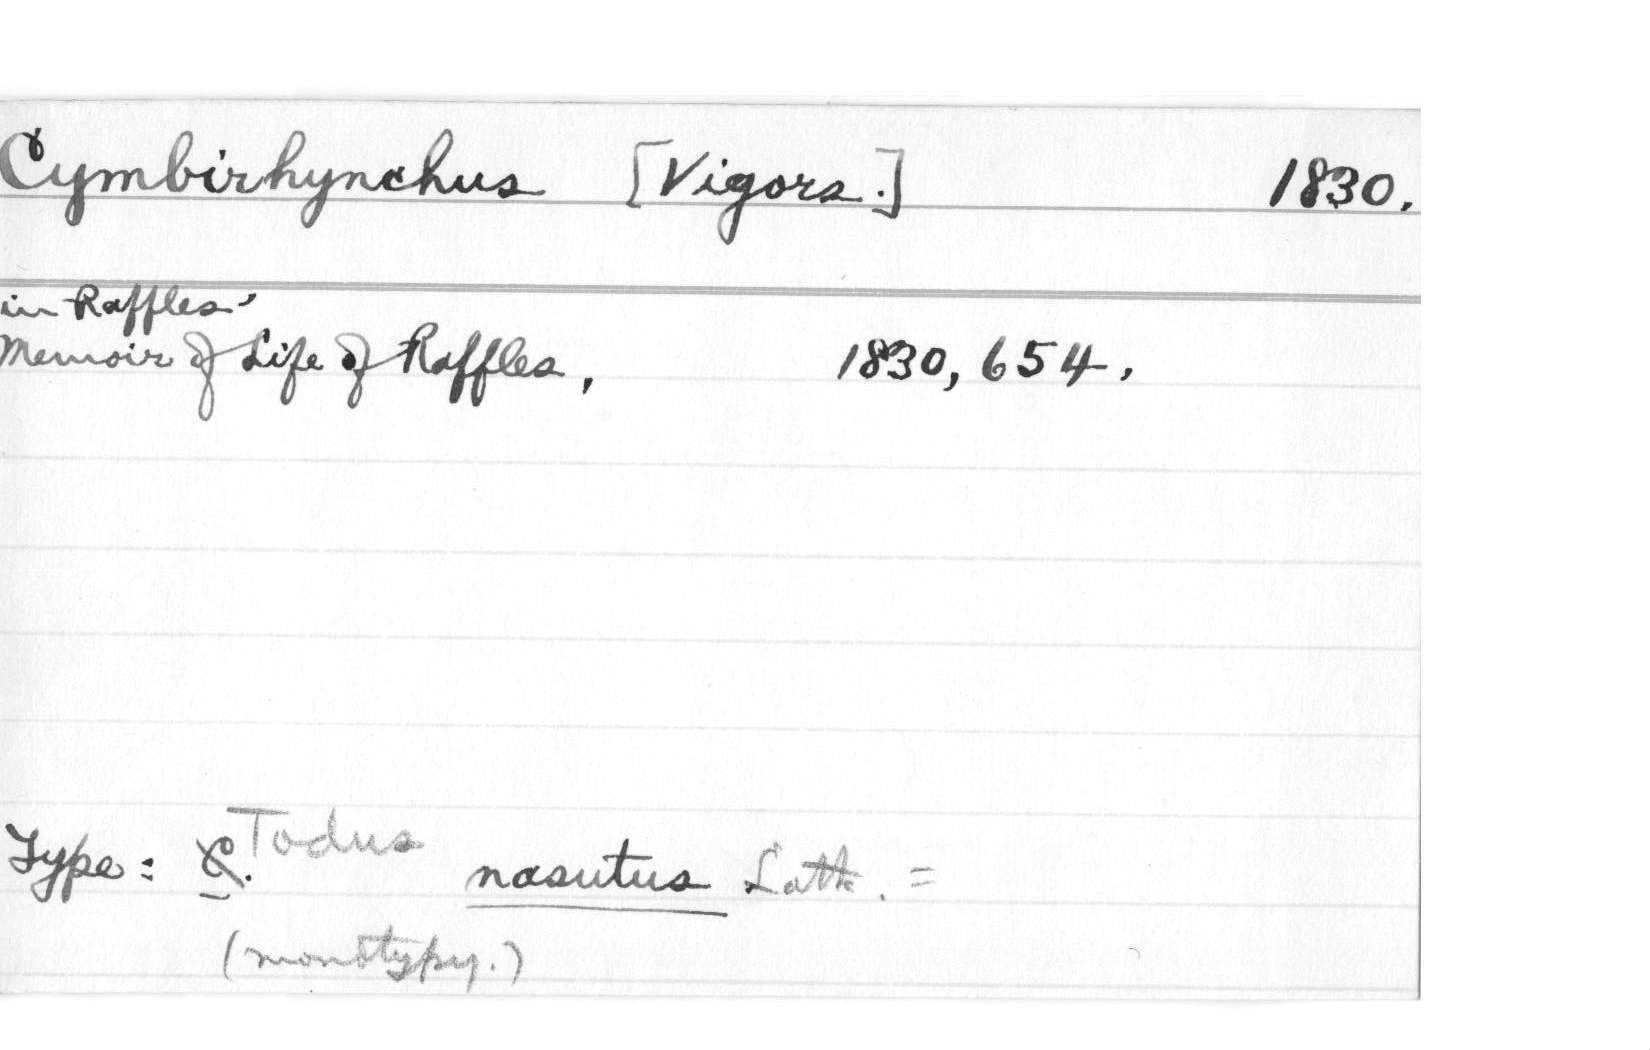 Cymbirhynchus [Vigors.] 1830.
in Raffles'
Memoir of Life of Raffles, 1830, 654,
Type: C. Todus nasutus Lath. =
(monotypy.)